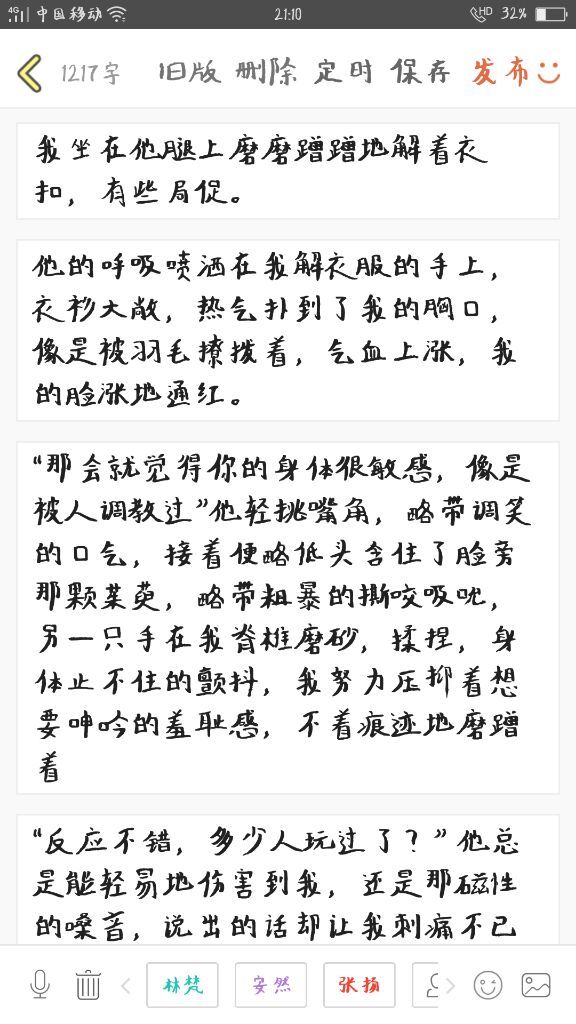 4G 中国移动 21:10 HD 32%
1217字 旧版 删除 定时 保存 发布
我坐在他腿上磨磨蹭蹭地解着衣
扣，有些局促。
他的呼吸喷洒在我解衣服的手上，
衣衫大敞，热气扑到了我的胸口，
像是被羽毛撩拨着，气血上涨，我
的脸涨地通红。
“那会就觉得你的身体很敏感，像是
被人调教过”他轻挑嘴角，略带调笑
的口气，接着便略低头含住了脸旁
那颗茱萸，略带粗暴的撕咬吸吮，
另一只手在我脊椎磨砂，揉捏，身
体止不住的颤抖，我努力压抑着想
要呻吟的羞耻感，不着痕迹地磨蹭
着
“反应不错，多少人玩过了？”他总
是能轻易地伤害到我，还是那磁性
的嗓音，说出的话却让我刺痛不已
林梵 安然 张扬